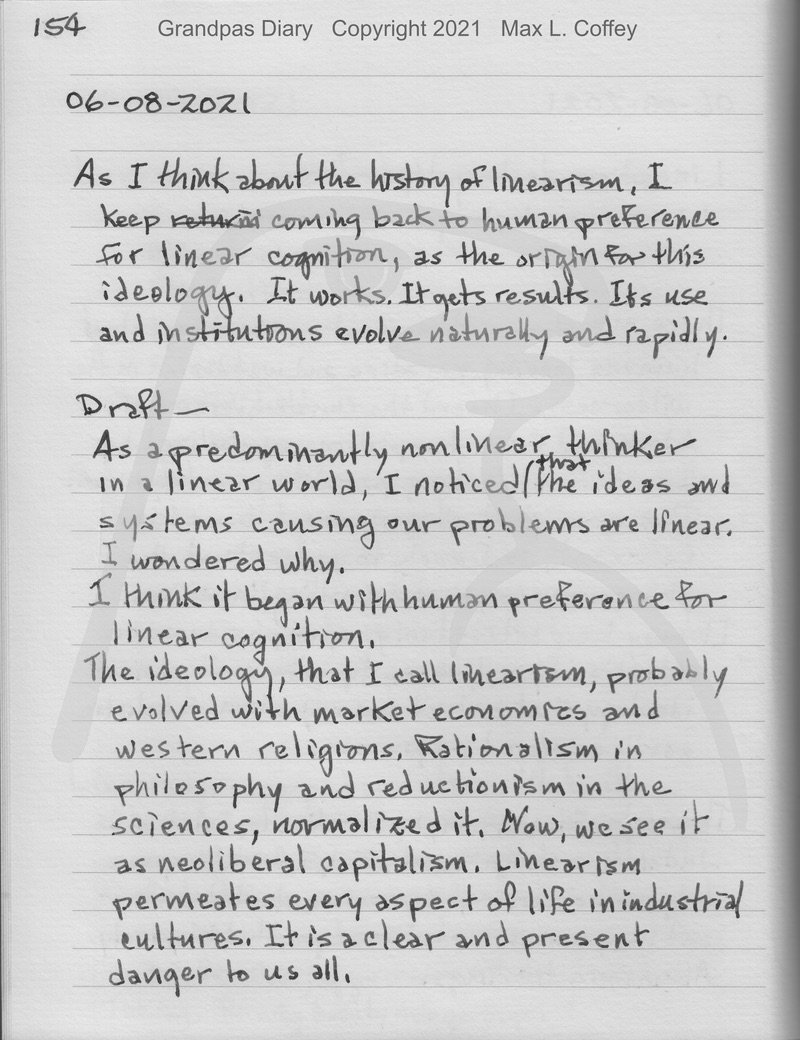 154 Grandpas Diary Copyright 2021 Max L. Coffey
06-08-2021
As I think about the history of linearism, I
keep coming back to human preference
for linear cognition, as the origin for this
ideology. It works. It gets results. Its use
and institutions evolve naturally and rapidly.
Draft—
As a predominantly nonlinear thinker
in a linear world, I noticed that the ideas and
systems causing our problems are linear.
I wondered why.
I think it began with human preference for
linear cognition.
The ideology, that I call linearism, probably
evolved with market economics and
western religions. Rationalism in
philosophy and reductionism in the
sciences, normalized it. Now, we see it
as neoliberal capitalism. Linearism
permeates every aspect of life in industrial
cultures. It is a clear and present
danger to us all.